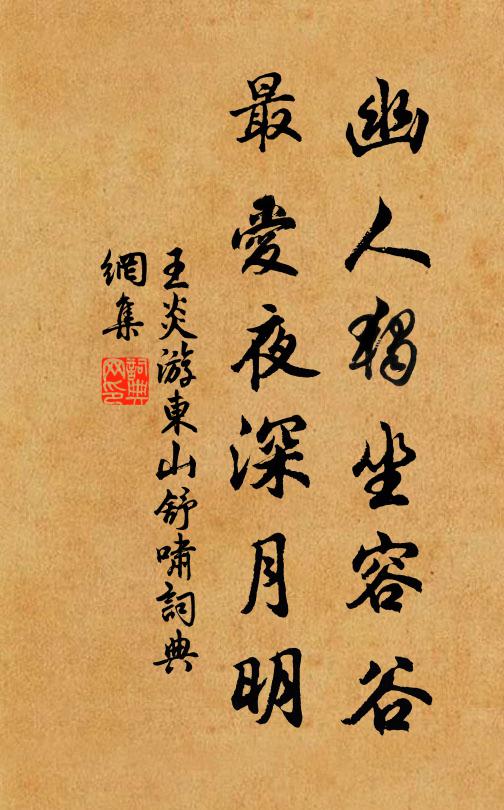 幽人獨坐容谷
最愛夜深月明
王炎游東山舒嘯詞典
網集
詞典
网印